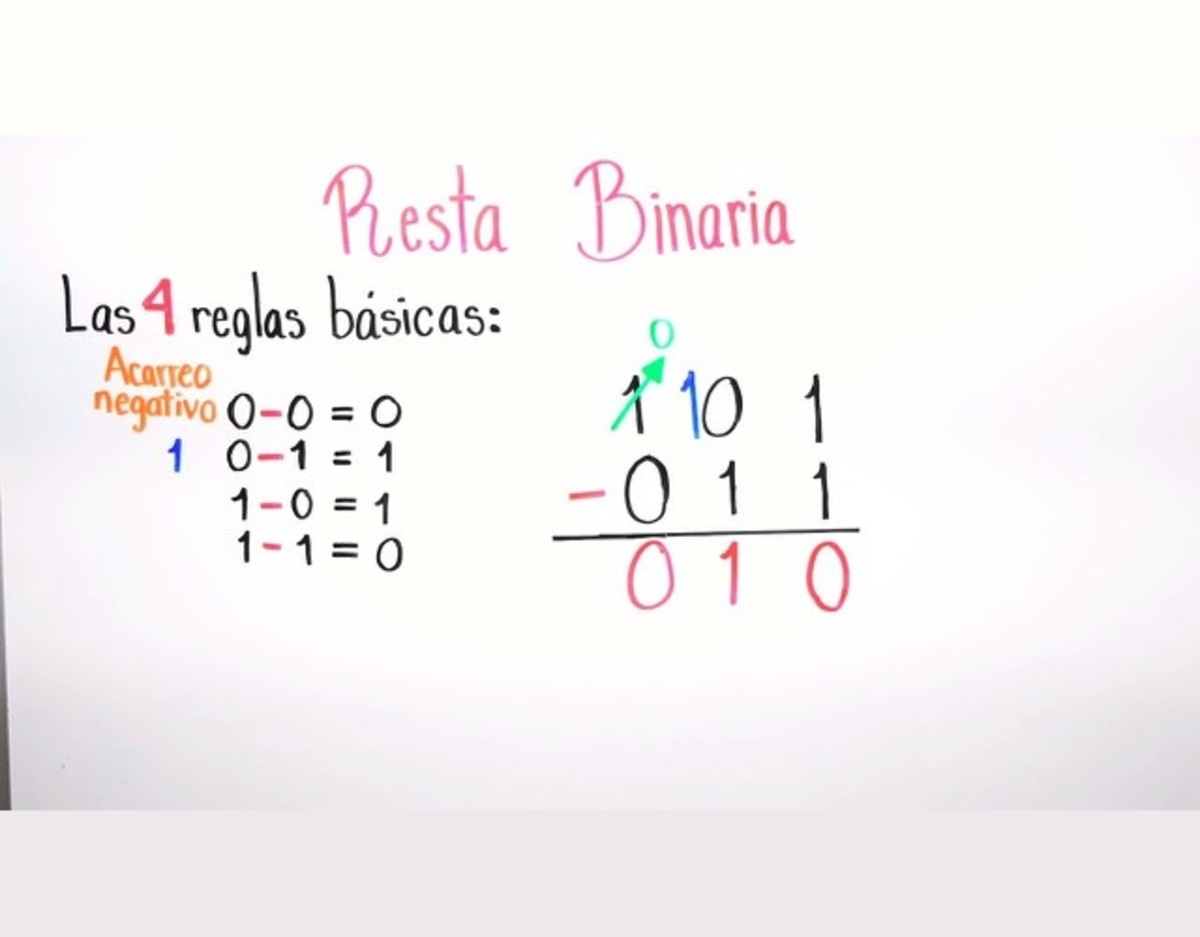 Resta Binaria
Las 4 reglas básicas:
Acarreo
negativo 0-0 = 0
1 0-1 = 1
1-0 = 1
1-1 = 0
0
1 10 1
- 0 1 1
0 1 0